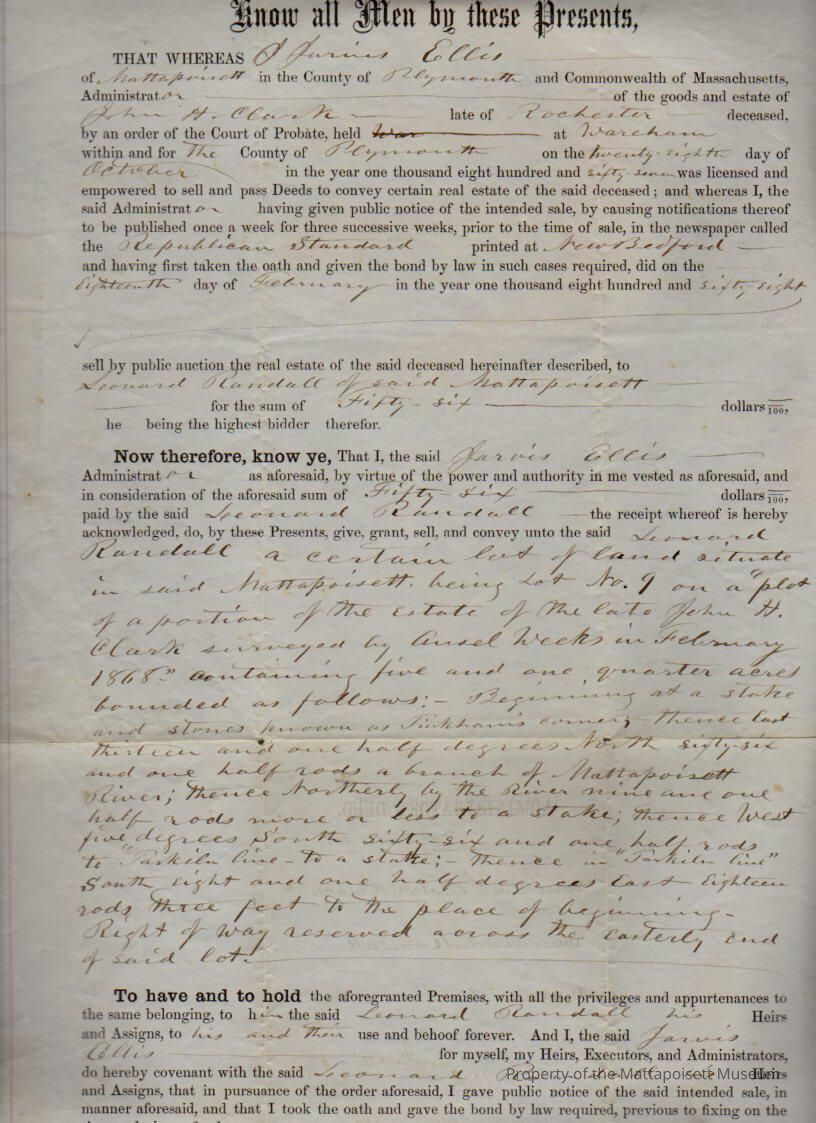 Know all Men by these Presents,
THAT WHEREAS I Jarvis Ellis
of Mattapoisett in the County of Plymouth and Commonwealth of Massachusetts,
Administrator of the goods and estate of
John H. Clark late of Rochester deceased,
by an order of the Court of Probate, held War at Wareham
within and for The County of Plymouth on the twenty-eighth day of
October in the year one thousand eight hundred and sixty-seven was licensed and
empowered to sell and pass Deeds to convey certain real estate of the said deceased; and whereas I, the
said Administrator having given public notice of the intended sale, by causing notifications thereof
to be published once a week for three successive weeks, prior to the time of sale, in the newspaper called
the Republican Standard printed at New Bedford
and having first taken the oath and given the bond by law in such cases required, did on the
Eighteenth day of February in the year one thousand eight hundred and sixty-eight
sell by public auction the real estate of the said deceased hereinafter described, to
Leonard Randall of said Mattapoisett
for the sum of Fifty-six dollars /100,
he being the highest bidder therefor.
Now therefore, know ye, That I, the said Jarvis Ellis
Administrator as aforesaid, by virtue of the power and authority in me vested as aforesaid, and
in consideration of the aforesaid sum of Fifty six dollars /100,
paid by the said Leonard Randall the receipt whereof is hereby
acknowledged, do, by these Presents, give, grant, sell, and convey unto the said Leonard
Randall a certain lot of land situate
in said Mattapoisett, being Lot No. 9 on a "plot
of a portion of the Estate of the late John H.
Clark surveyed by Ansel Weeks in February
1868" containing five and one quarter acres
bounded as follows:- Beginning at a stake
and stones known as Pinkham's corner, thence East
thirteen and one half degrees North sixty-six
and one half rods a branch of Mattapoisett
River; thence Northerly by the River nine and one
half rods more or less to a stake; thence West
five degrees South sixty-six and one half rods
to "Tarkiln line - to a stake; - thence in "Tarkiln line"
South Eight and one half degrees East Eighteen
rods three feet to the place of beginning.-
Right of Way reserved across the easterly end
of said lot.
To have and to hold the aforegranted Premises, with all the privileges and appurtenances to
the same belonging, to him the said Leonard Randall his Heirs
and Assigns, to his and their use and behoof forever. And I, the said Jarvis
Ellis for myself, my Heirs, Executors, and Administrators,
do hereby covenant with the said Leonard Heirs
Property of the Mattapoisett Museum
and Assigns, that in pursuance of the order aforesaid, I gave public notice of the said intended sale, in
manner aforesaid, and that I took the oath and gave the bond by law required, previous to fixing on the